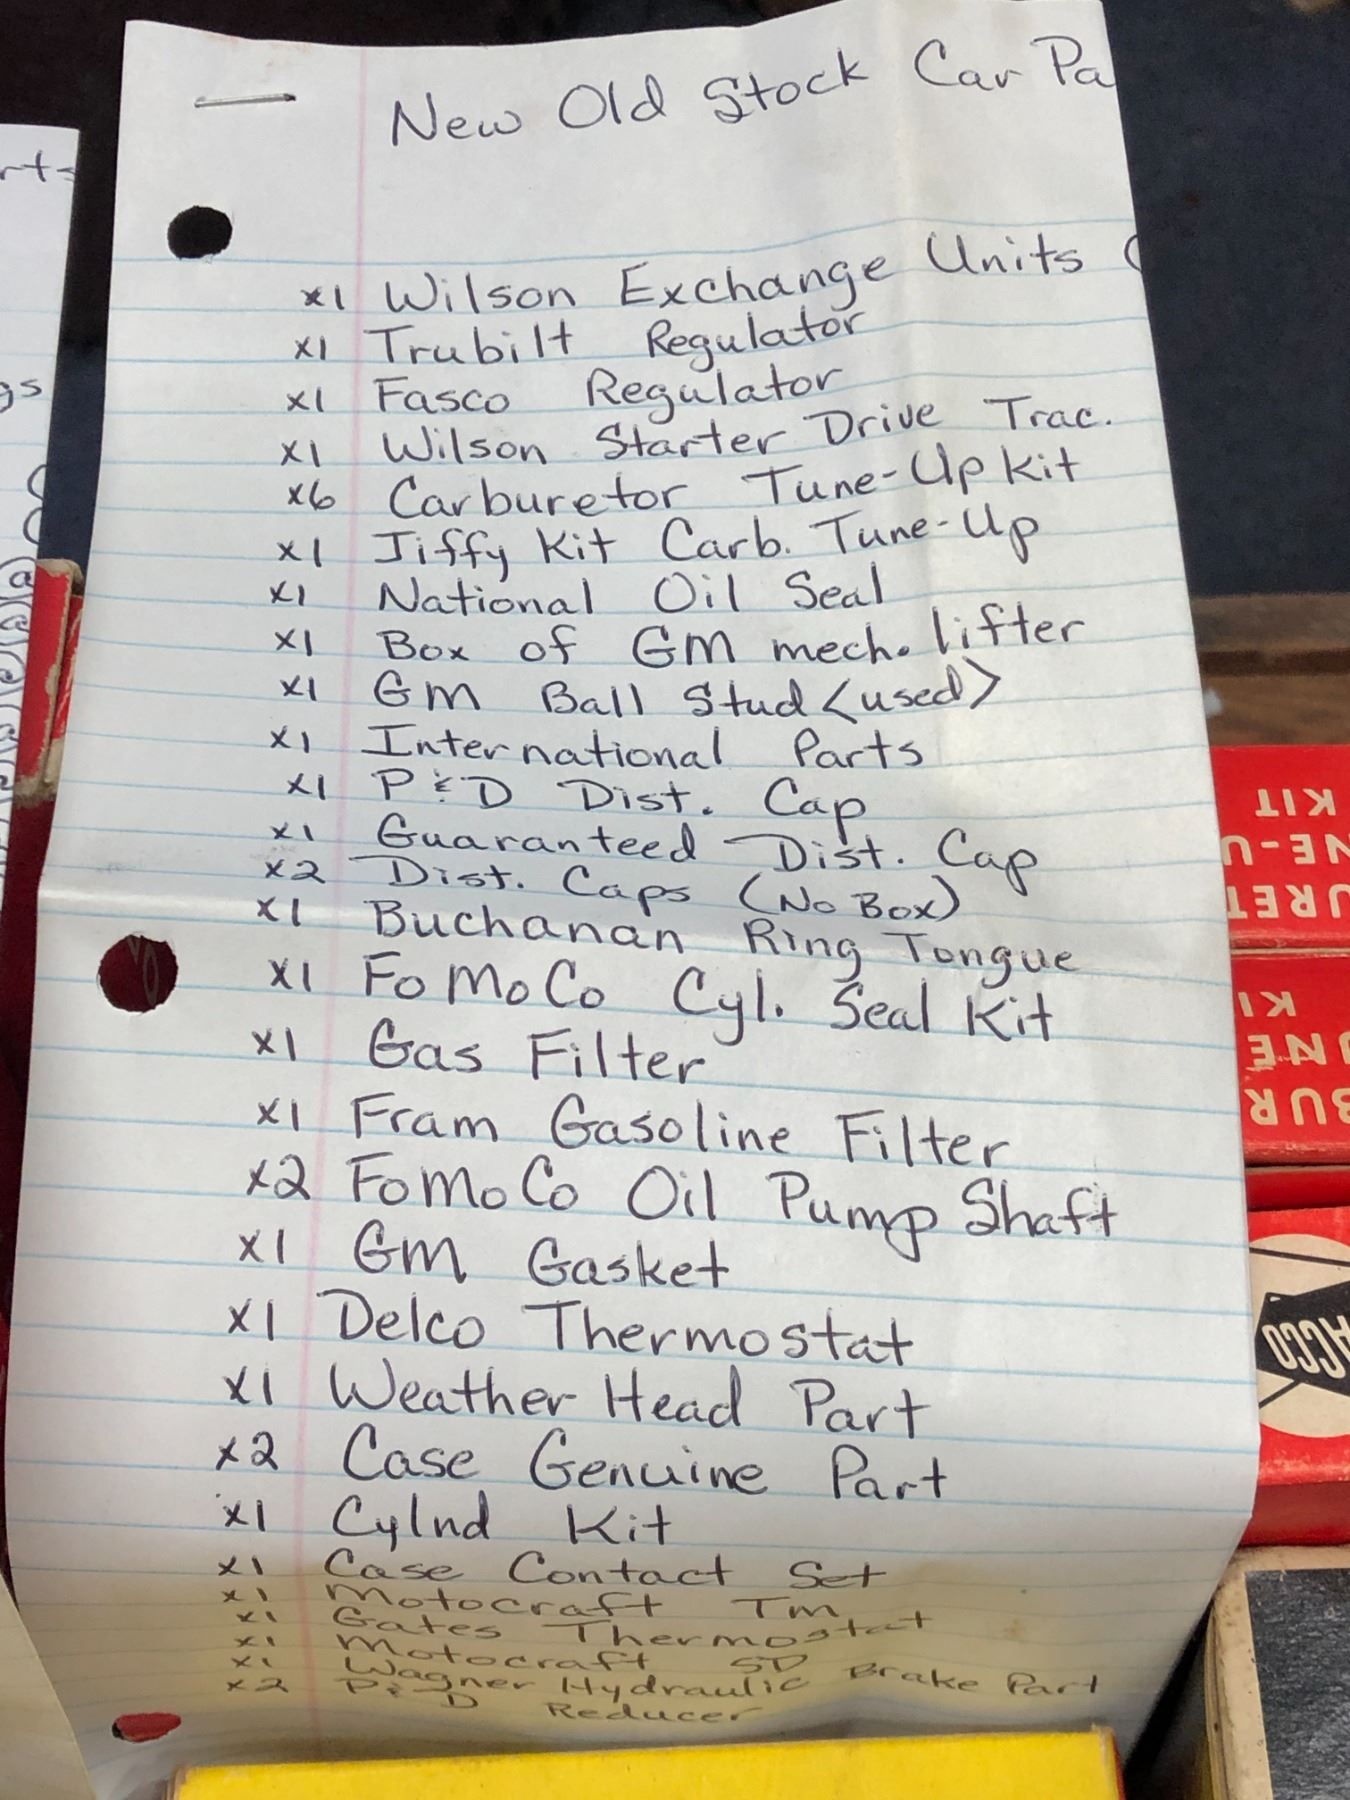 New Old Stock Car Pa
x1 Wilson Exchange Units (
x1 Trubilt Regulator
x1 Fasco Regulator
x1 Wilson Starter Drive Trac.
x6 Carburetor Tune-Up Kit
x1 Jiffy Kit Carb. Tune-Up
x1 National Oil Seal
x1 Box of GM mech. lifter
x1 GM Ball Stud <used>
x1 International Parts
x1 P&D Dist. Cap
x1 Guaranteed Dist. Cap
x2 Dist. Caps (No Box)
x1 Buchanan Ring Tongue
x1 FoMoCo Cyl. Seal Kit
x1 Gas Filter
x1 Fram Gasoline Filter
x2 FoMoCo Oil Pump Shaft
x1 GM Gasket
x1 Delco Thermostat
x1 Weather Head Part
x2 Case Genuine Part
x1 Cylnd Kit
x1 Case Contact Set
x1 Motocraft Tm
x1 Gates Thermostat
x1 Motocraft SD
x1 Wagner Hydraulic Brake Part
x2 P&D Reducer
rts
gs
KIT
NE-U
URET
KI
UNE
BUR
ACCO